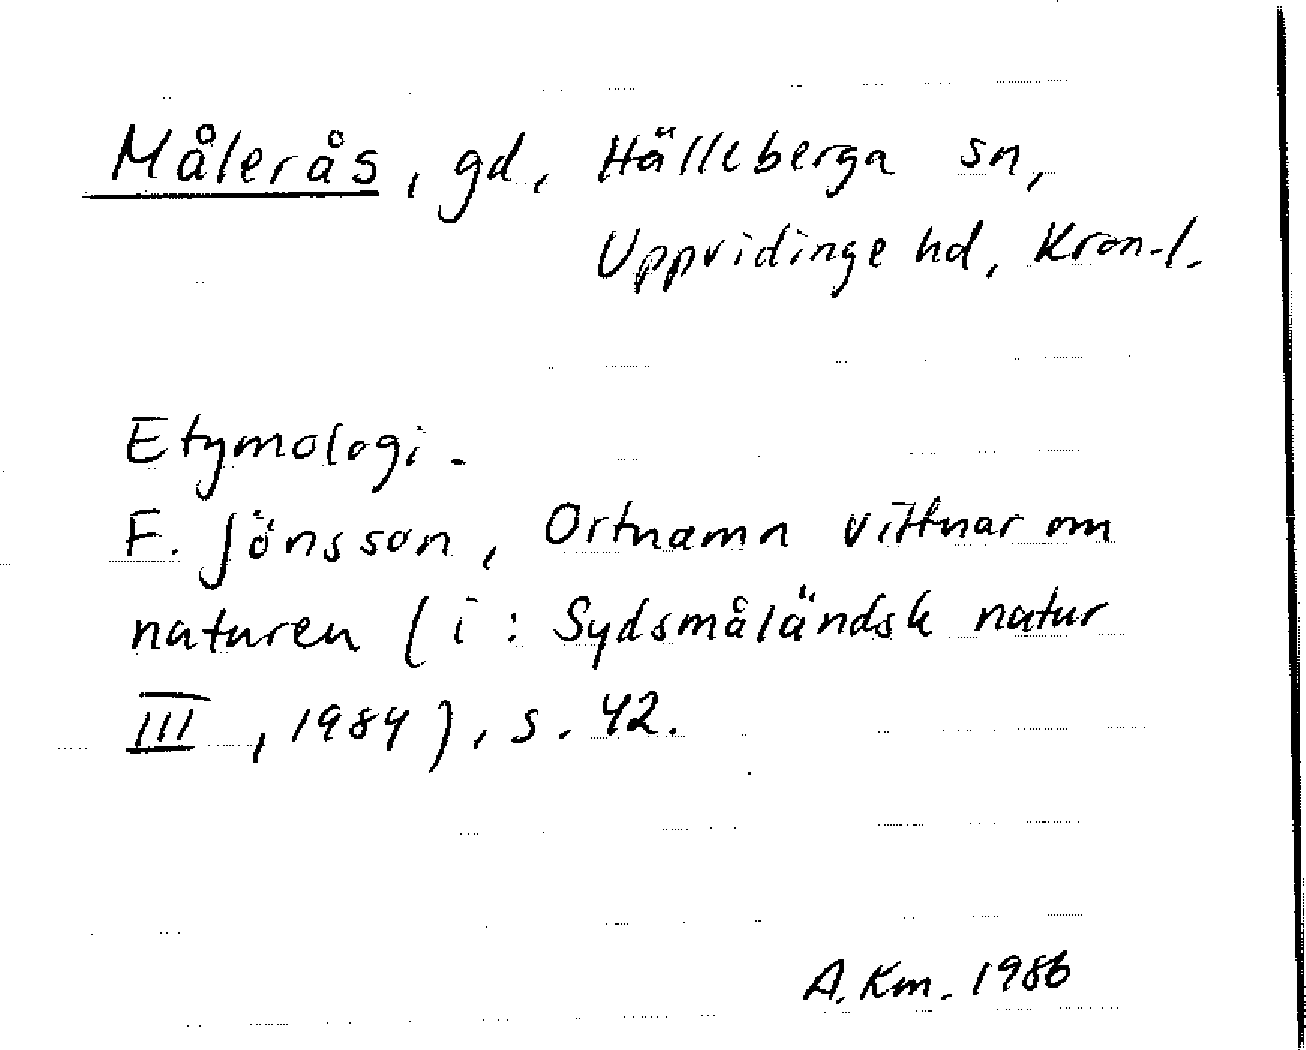 Målerås, gd, Hälleberga sn,
Uppvidinge hd, Kron.l.
Etymologi.
F. Jönsson, Ortnamn vittnar om
naturen (i: Sydsmåländsk natur
III, 1984), s. 42.
A. Km. 1986